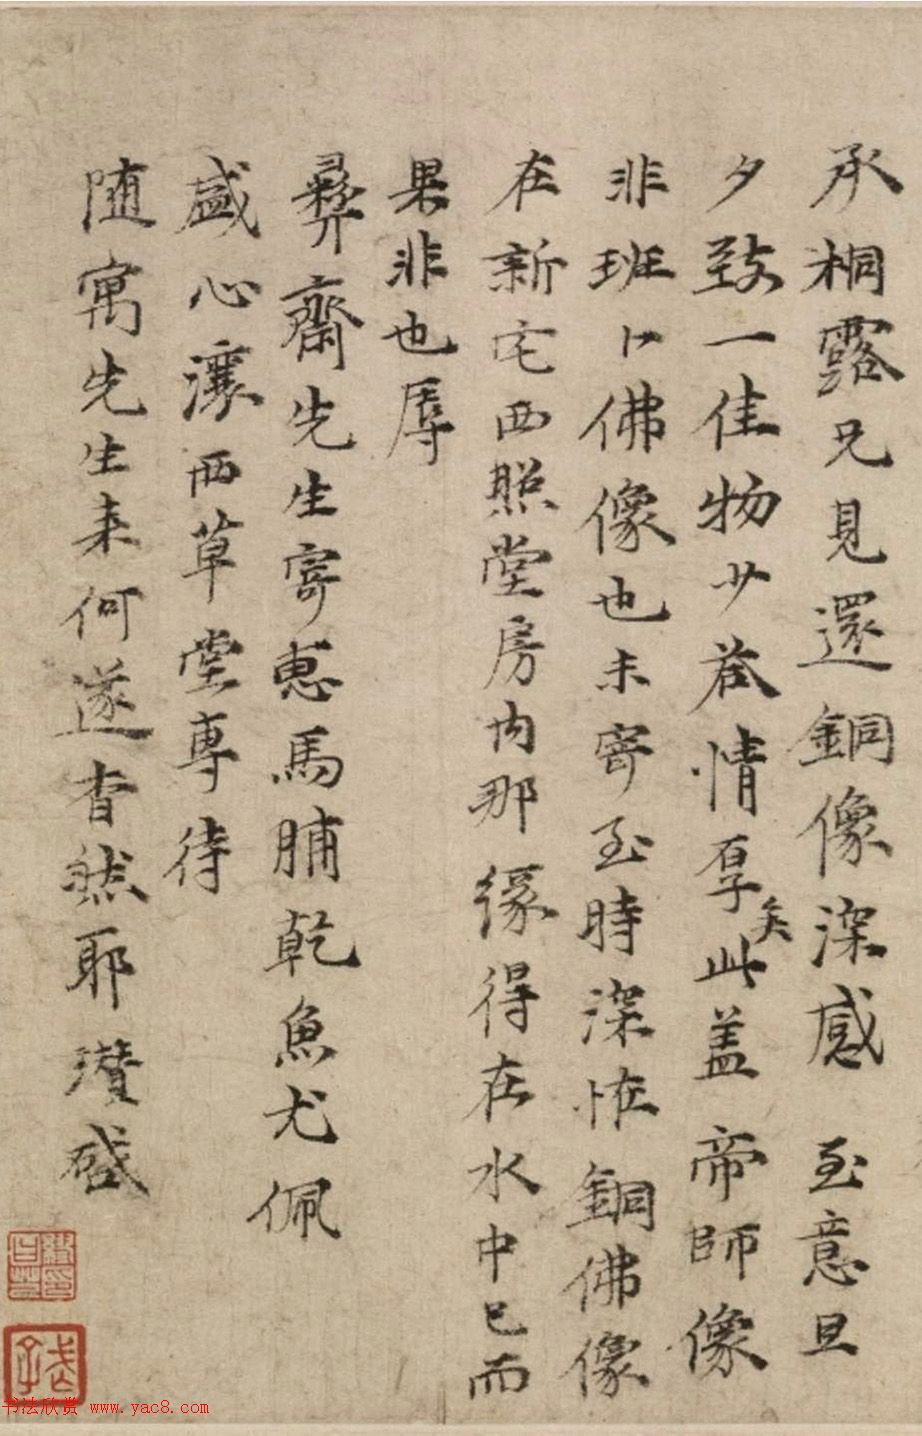 承桐露兄見還銅像深感至意旦
夕致一佳物少荅情厚矣此蓋帝師像
非班卜佛像也未寄至時深怪銅佛像
在新宅西照堂房内那緣得在水中已而
果非也辱
彛齋先生寄惠馬脯乾魚尤佩
盛心瀼西草堂専待
随寓先生来何遂杳然耶瓚啓
书法欣赏 www.yac8.com